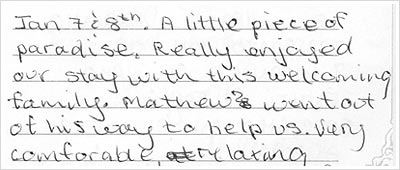 Jan 7 & 8th. A little piece of
paradise. Really enjoyed
our stay with this welcoming
family. Mathew went out
of his way to help us. Very
comforable, relaxing